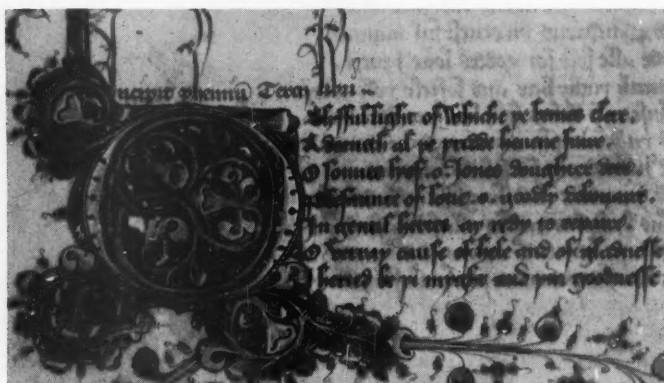 ncipit phemiū Tercij libri
Blisful light of Whiche þe bemes clere.
Adorneth al þe þridde heuene faire.
O sonnes lyef. o. Joues doughter dere.
Plesaunce of loue. o. goodly debonaire.
In gentil hertes ay redy to repaire.
O verray cause of hele and of gladnesse
Iheried be þi myght and þin goodnesse